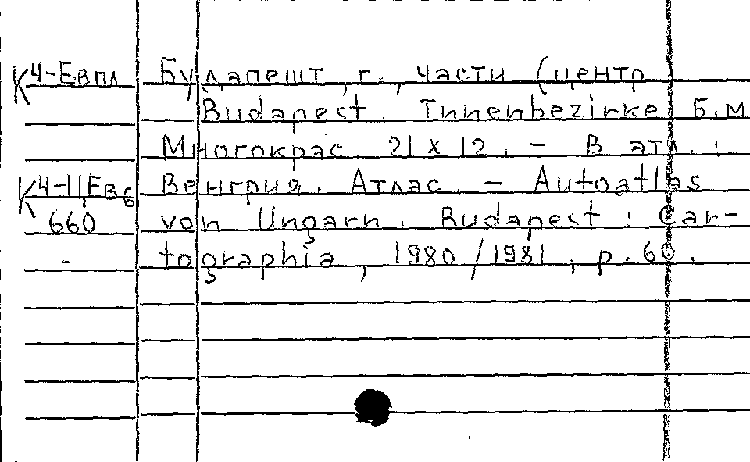 К4-Евпл Будапешт, г., части (центр
Budapest. Innenbezirke. Б.М.
Многокрас. 21 x 12. - В атл.:
К4-11/Евб Венгрия. Атлас. - Autoatlas
660 von Ungarn. Budapest: Car-
tographia, 1980/1981, p. 60.